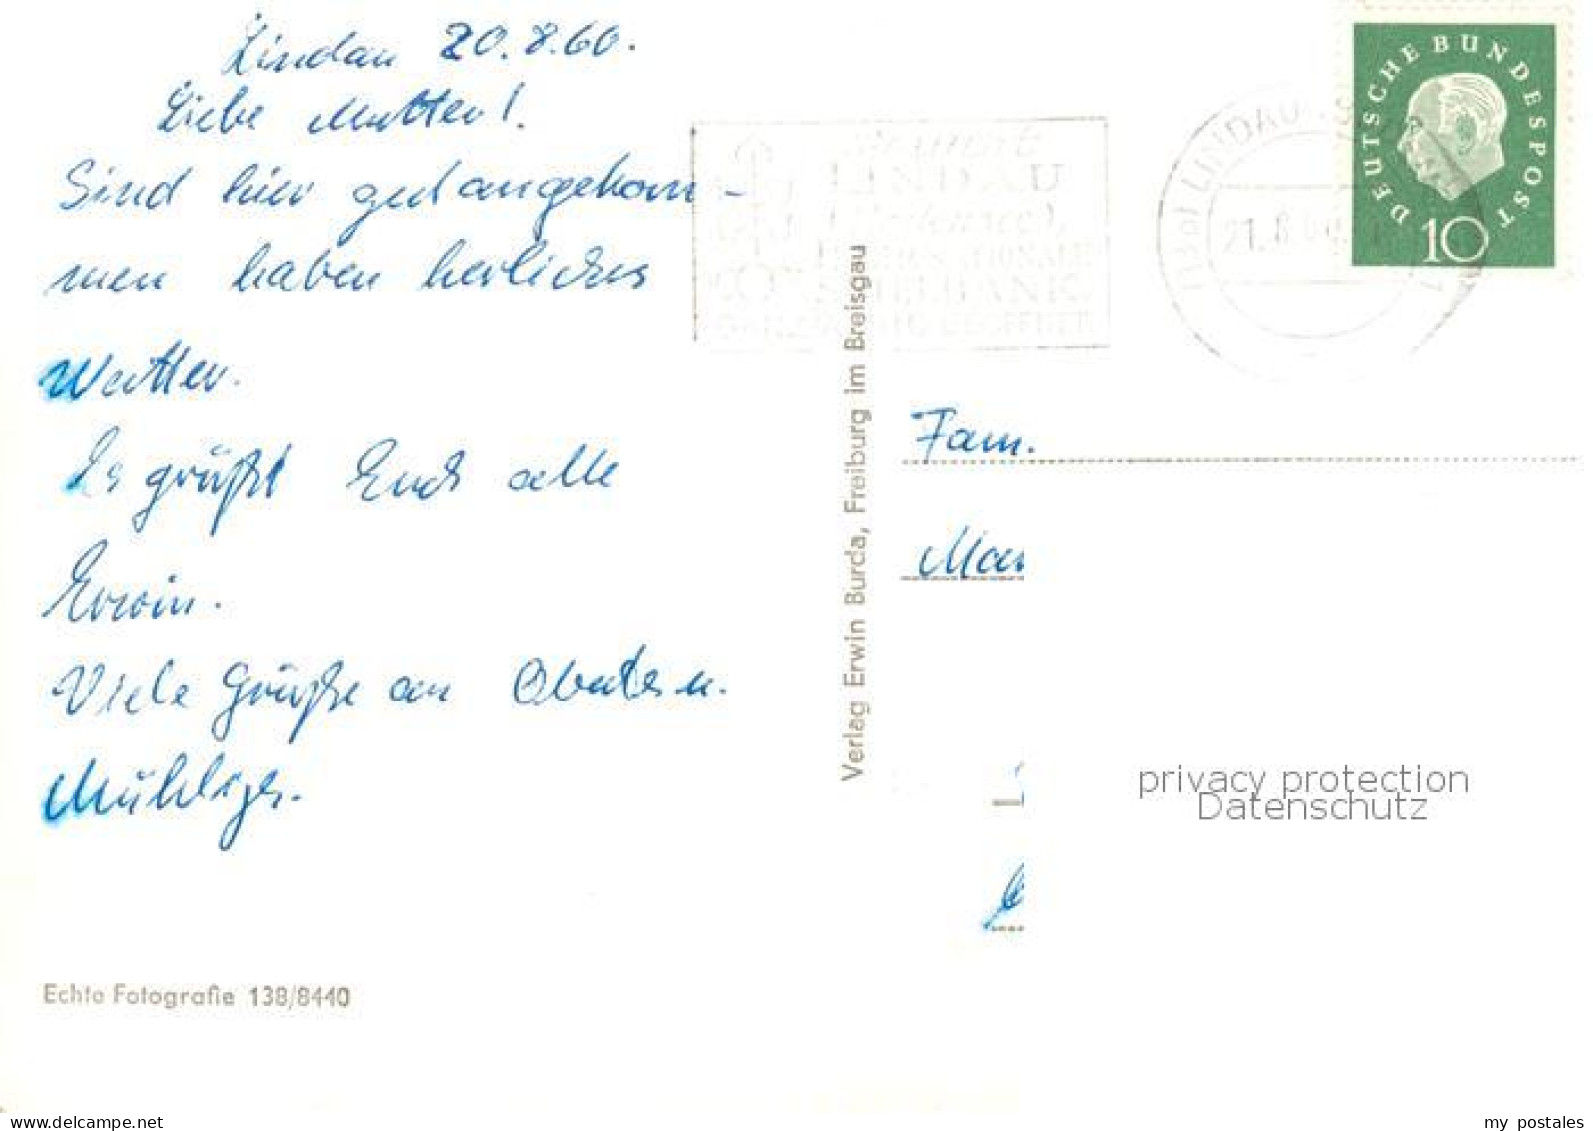 Lindau 20.8.60.
Liebe Mutter!
Sind hier gut angekom-
men haben herliches
Wetter.
Es grüßt Euch alle
Erwin.
Viele Grüße an
Echte Fotografie 138/8440
Verlag Erwin Burda, Freiburg im Breisgau
LINDAU
SPIELBANK
GEÖFFNET
LINDAU
21.8.60
DEUTSCHE BUNDESPOST
10
Fam.
privacy protection
Datenschutz
www.delcampe.net
my_postales